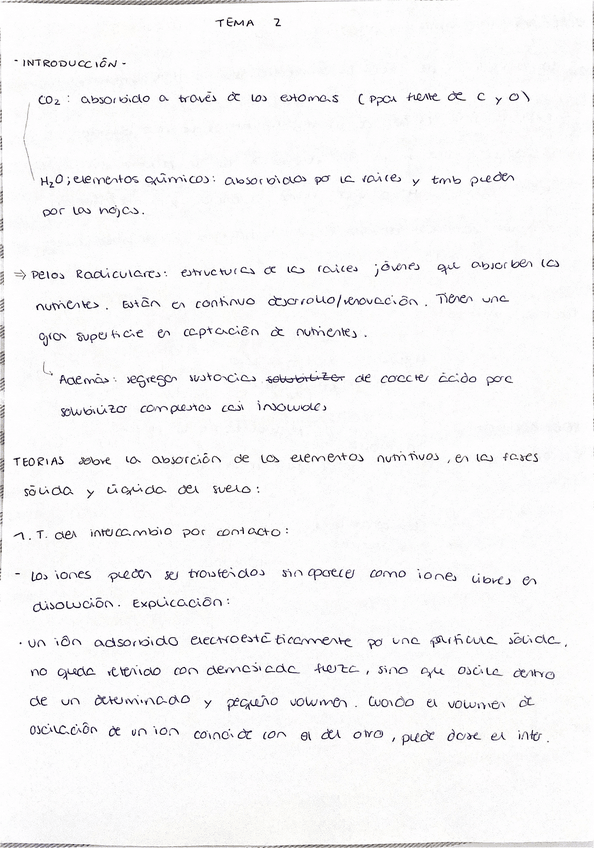 TEMA 2
- INTRODUCCIÓN -
CO2 : absorbido a través de los estomas ( Ppal fuente de C y O )
H2O ; elementos químicos : absorbidos por la raíces y tmb pueden
por las hojas.
⇒ Pelos Radiculares : estructuras de las raíces jóvenes que absorben los
nutrientes. Están en continuo desarrollo/renovación. Tienen una
gran superficie en captación de nutrientes.
↳ Además : segregan sustancias solubilizar de carácter ácido para
solubilizar compuestos casi insolubles
TEORIAS sobre la absorción de los elementos nutritivos, en las fases
sólida y líquida del suelo :
1. T. del intercambio por contacto :
- Los iones pueden ser transferidos sin aparecer como iones libres en
disolución. Explicación :
· un ión adsorbido electroestáticamente por una partícula sólida,
no queda retenido con demasiada fuerza, sino que oscila dentro
de un determinado y pequeño volumen. Cuando el volumen de
oscilación de un ion coincide con el del otro, puede darse el inter.